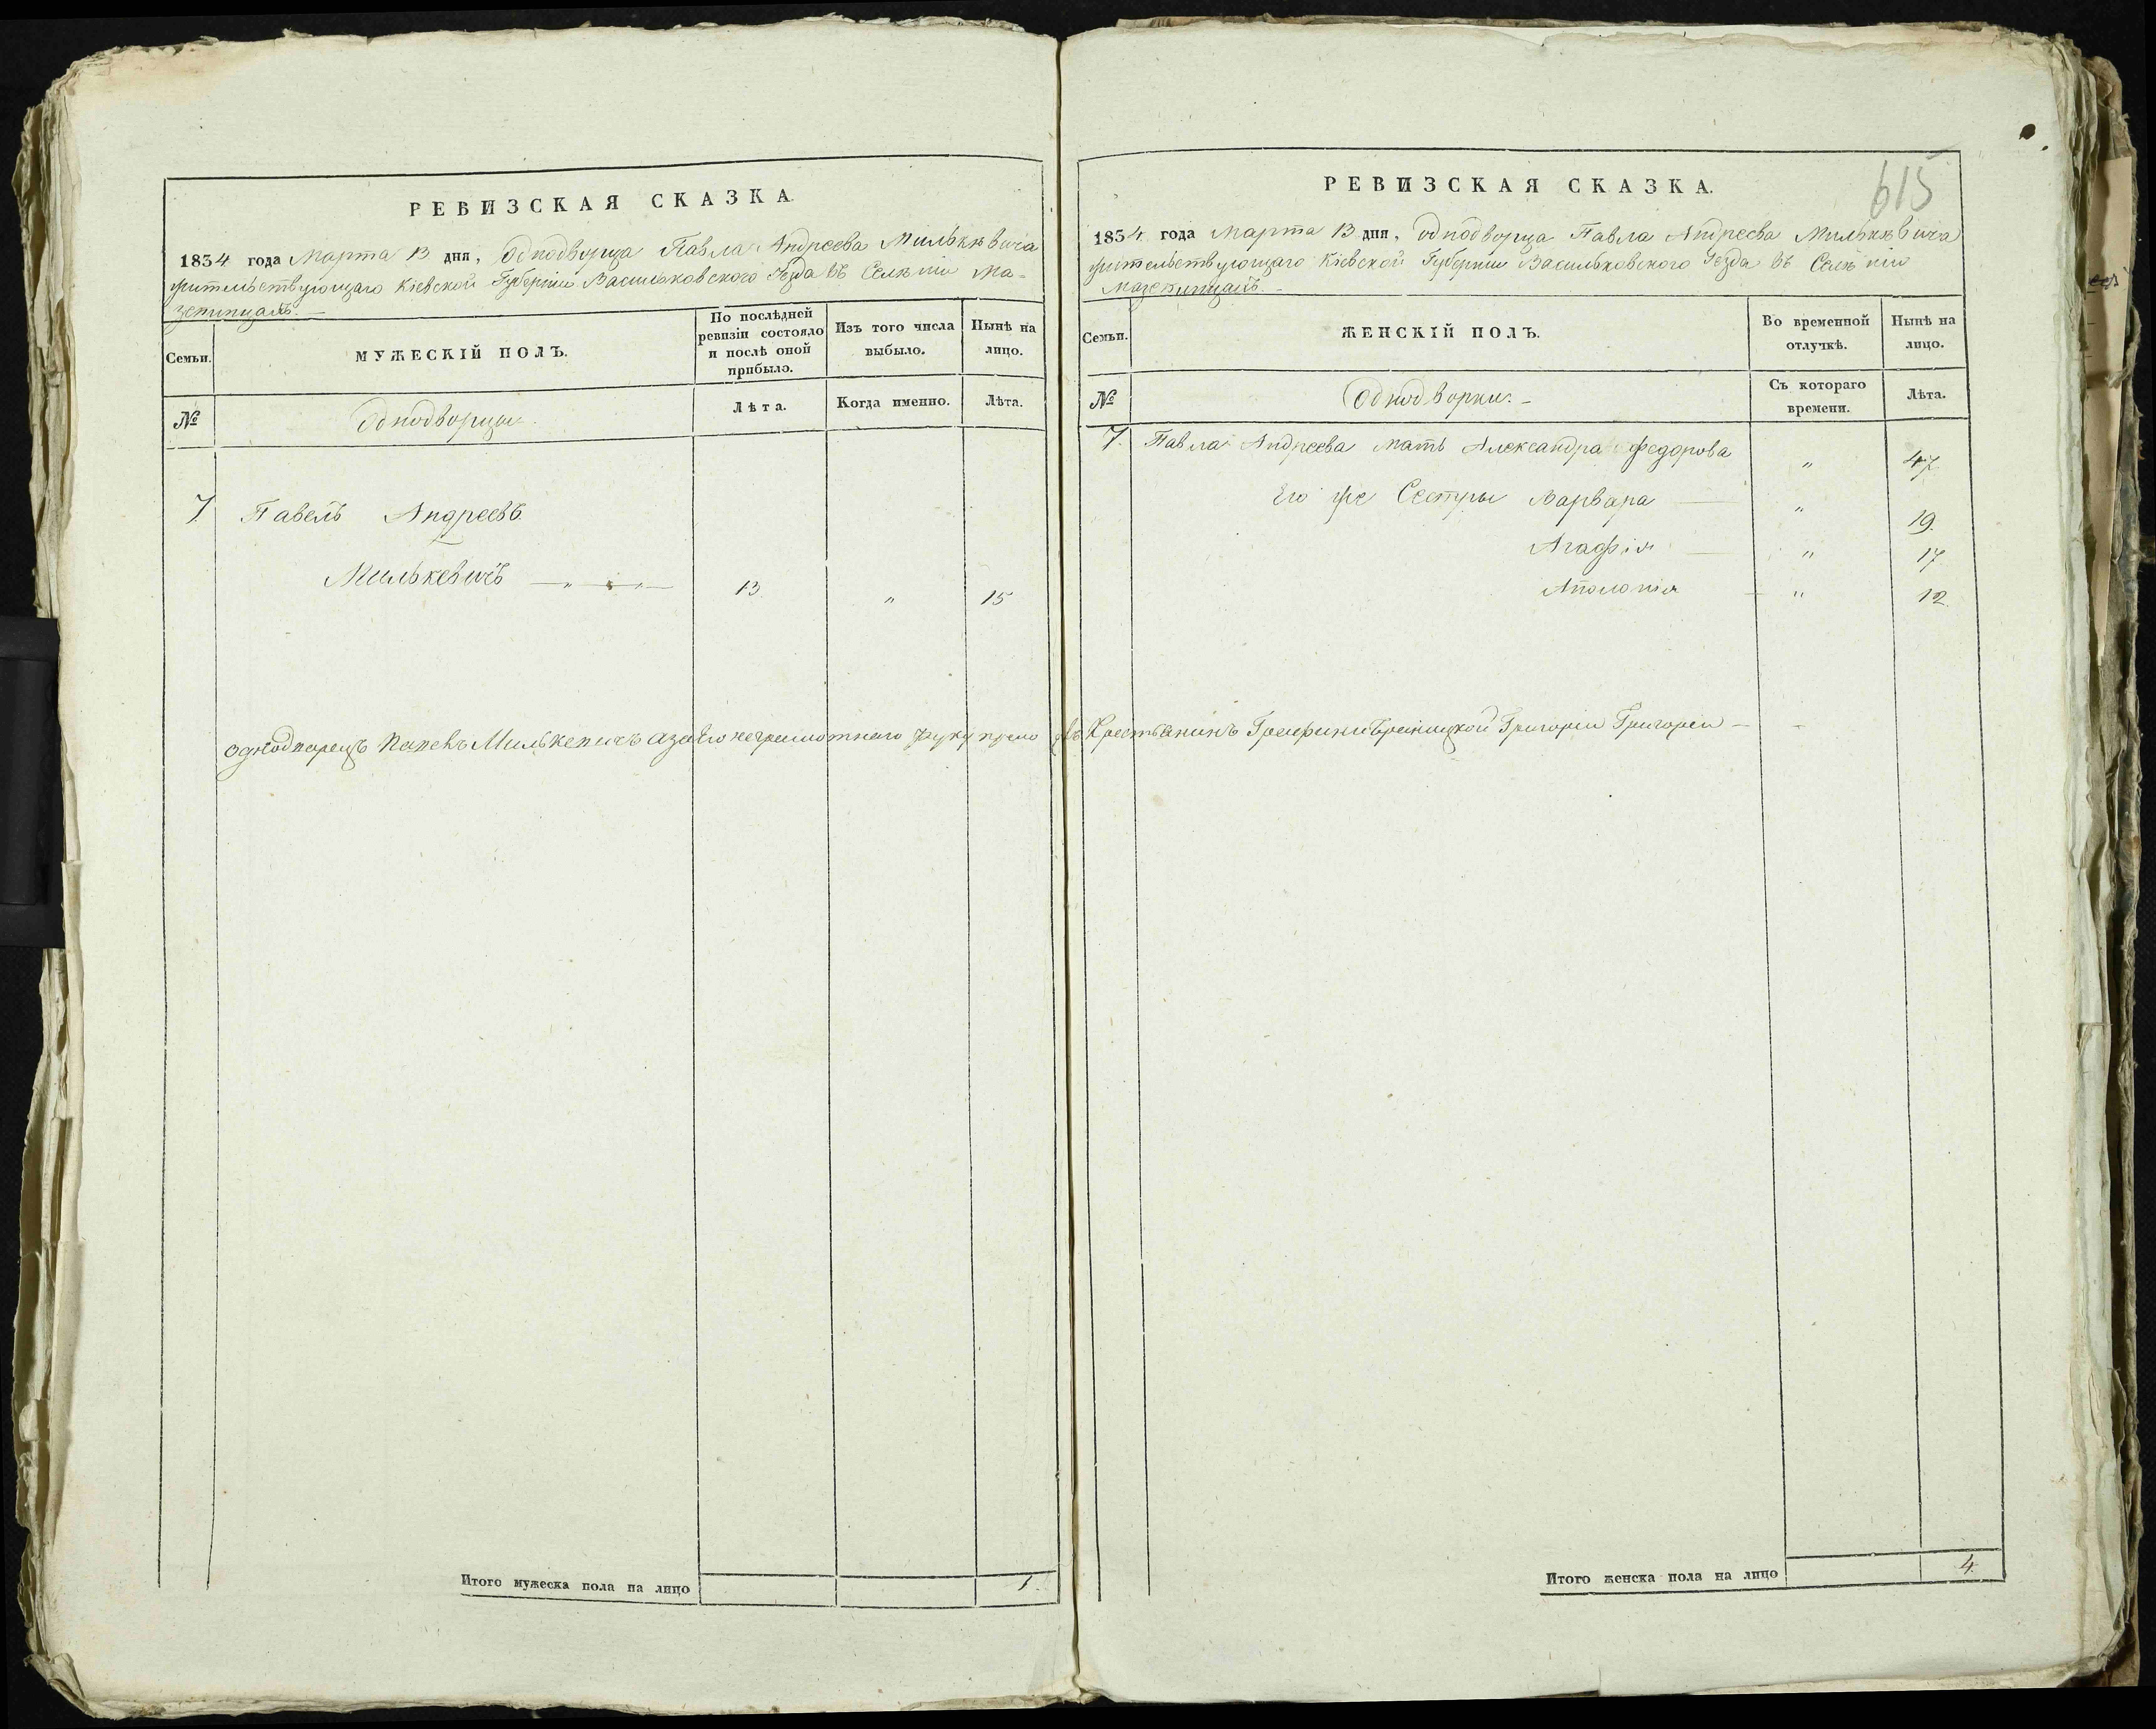 РЕВИЗСКАЯ СКАЗКА.
1834 года Марта 13 дня, Однодворца Павла Андреева Милькевича
жительствующаго Кіевской Губерніи Васильковского Уезда въ Селеніи Ма-
зепинцахъ.
Семьи.
МУЖЕСКІЙ ПОЛЪ.
По послѣдней ревизіи состояло и послѣ оной прибыло.
Изъ того числа выбыло.
Нынѣ на лицо.
№
Однодворцы.
Лѣта.
Когда именно.
Лѣта.
7. Павелъ Андреевъ
Милькевичъ — „ — „ — 13. „ 15
однодворецъ Павелъ Милькевичъ азаего неграмотнаго руку
Итого мужеска пола на лицо 1.
615
РЕВИЗСКАЯ СКАЗКА.
1834 года Марта 13 дня, Однодворца Павла Андреева Милькевича
жительствующаго Кіевской Губерніи Васильковского Уезда въ Селеніи
Мазепинцахъ. —
Семьи.
ЖЕНСКІЙ ПОЛЪ.
Во временной отлучкѣ.
Нынѣ на лицо.
№
Однодворки. —
Съ котораго времени.
Лѣта.
7. Павла Андреева мать Александра Федорова „ 47
Его же Сестры Варвара — „ 19.
Агафія — „ 17
Аполонія — „ 12.
Крестьянинъ Григорій
Итого женска пола на лицо 4.